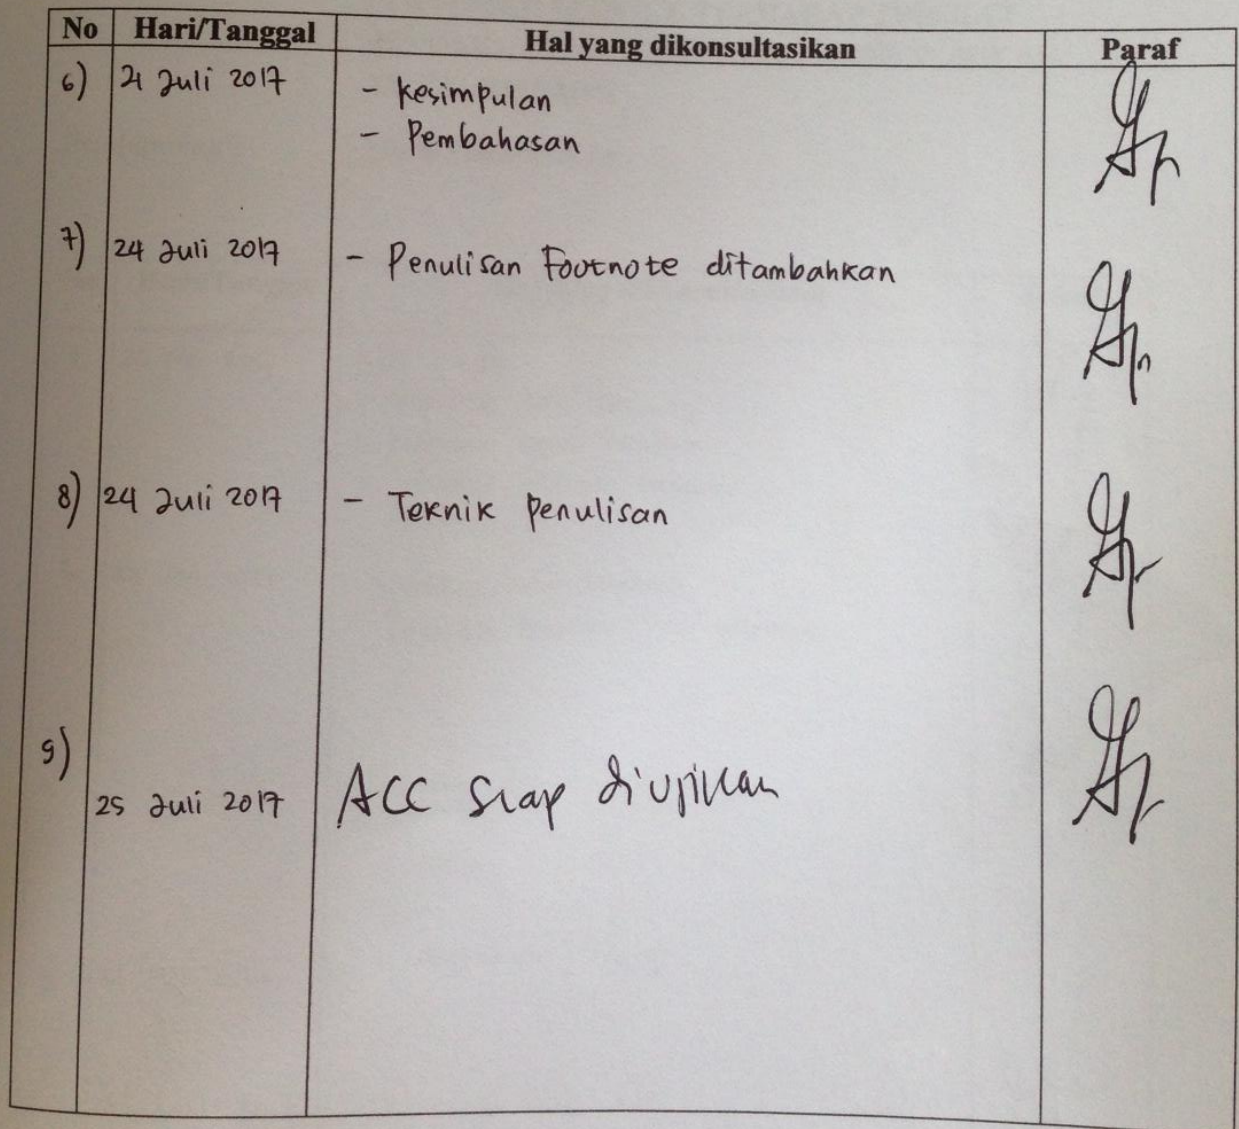 No Hari/Tanggal Hal yang dikonsultasikan Paraf
6) 21 Juli 2017 - Kesimpulan
- Pembahasan
7) 24 Juli 2017 - Penulisan Footnote ditambahkan
8) 24 Juli 2017 - Teknik Penulisan
9)
25 Juli 2017 ACC Siap diujikan